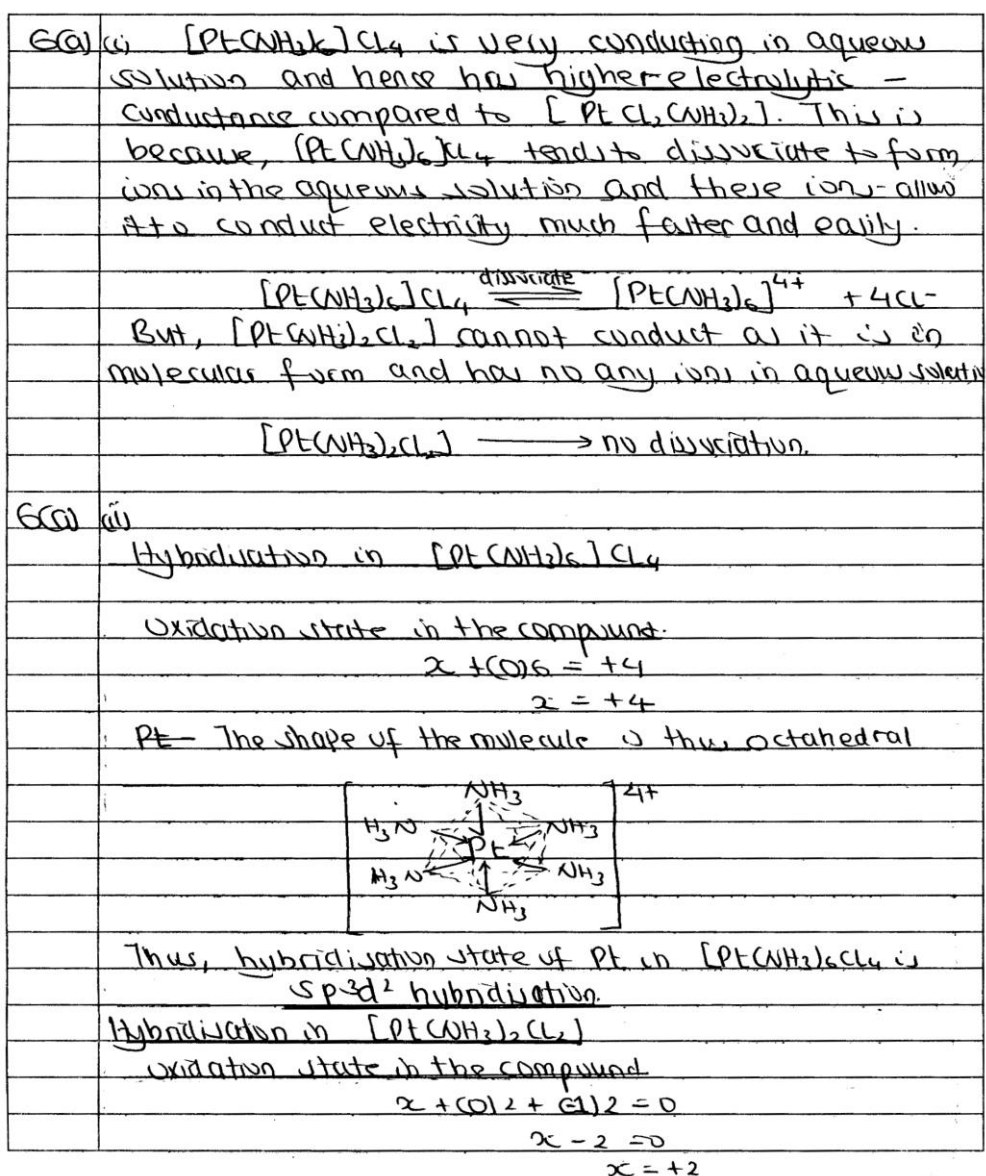 6(a) (i) [Pt(NH3)6]Cl4 is very conducting in aqueous
solution and hence has higher electrolytic -
conductance compared to [PtCl2(NH3)2]. This is
because, [Pt(NH3)6]Cl4 tends to dissociate to form
ions in the aqueous solution and these ions-allow
it to conduct electricity much faster and easily.
[Pt(NH3)6]CL4 ⇌ dissociate [Pt(NH3)6]4+ + 4Cl-
But, [Pt(NH3)2Cl2] cannot conduct as it is in
molecular form and has no any ions in aqueous solutn
[Pt(NH3)2Cl2] ⟶ no dissociation.
6(a) (ii)
Hybridisation in [Pt(NH3)6]CL4
Oxidation state in the compound.
x + (0)6 = +4
x = +4
Pt The shape of the molecule is thus octahedral
NH3 4+
H3N NH3
Pt
H3N NH3
NH3
Thus, hybridisation state of Pt in [Pt(NH3)6Cl4 is
sp3d2 hybridisation.
Hybridisation in [Pt(NH3)2CL2]
Oxidation state in the compound
x + (0)2 + (-1)2 = 0
x - 2 = 0
x = +2